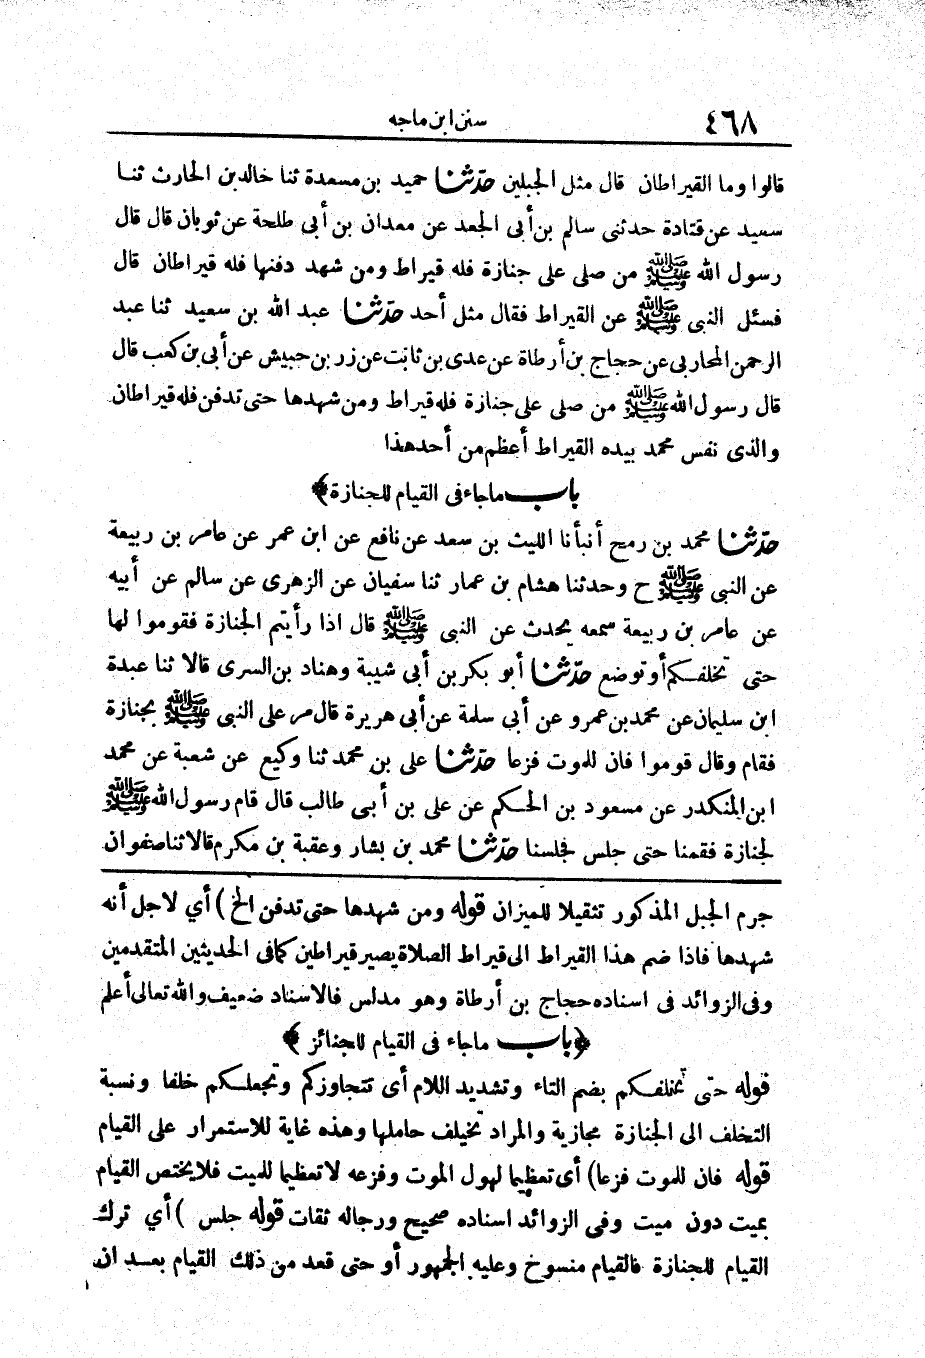 ٤٦٨ سنن ابن ماجه
قالوا وما القيراطان قال مثل الجبلين حدّثنا حميد بن مسعدة ثنا خالد بن الحارث ثنا
سعيد عن قتادة حدثنى سالم بن أبى الجعد عن معدان بن أبي طلحة عن ثوبان قال قال
رسول الله ﷺ من صلى على جنازة فله قيراط ومن شهد دفنها فله قيراطان قال
فسئل النبى ﷺ عن القيراط فقال مثل أحد حدّثنا عبد الله بن سعيد ثنا عبد
الرحمن المحاربى عن حجاج بن أرطاة عن عدى بن ثابت عن زر بن حبيش عن أبي بن كعب قال
قال رسول الله ﷺ من صلى على جنازة فله قيراط ومن شهدها حتى تدفن فله قيراطان
والذى نفس محمد بيده القيراط أعظم من أحد هذا
باب ماجاء فى القيام للجنازة ﴾
حدّثنا محمد بن رمح أنبأنا الليث بن سعد عن نافع عن ابن عمر عن عامر بن ربيعة
عن النبى ﷺ ح وحدثنا هشام بن عمار ثنا سفيان عن الزهرى عن سالم عن أبيه
عن عامر بن ربيعة سمعه يحدث عن النبى ﷺ قال اذا رأيتم الجنازة فقوموا لها
حتى تخلفكم أو توضع حدّثنا أبو بكر بن أبي شيبة وهناد بن السرى قالا ثنا عبدة
ابن سليمان عن محمد بن عمرو عن أبي سلمة عن أبى هريرة قال مر على النبى ﷺ بجنازة
فقام وقال قوموا فان للموت فزعا حدّثنا على بن محمد ثنا وكيع عن شعبة عن محمد
ابن المنكدر عن مسعود بن الحكم عن على بن أبى طالب قال قام رسول الله ﷺ
لجنازة فقمنا حتى جلس فجلسنا حدّثنا محمد بن بشار وعقبة بن مكرم قالا ثنا صفوان
جرم الجبل المذكور تثقيلا للميزان قوله ومن شهدها حتى تدفن الخ) أي لاجل أنه
شهدها فاذا ضم هذا القيراط الى قيراط الصلاة يصير قيراطين كما فى الحديثين المتقدمين
وفى الزوائد فى اسناده حجاج بن أرطاة وهو مدلس فالاسناد ضعيف والله تعالى أعلم
﴿ باب ماجاء فى القيام للجنائز ﴾
قوله حتى تخلفكم بضم التاء وتشديد اللام أى تتجاوزكم وتجعلكم خلفا ونسبة
التخلف الى الجنازة مجازية والمراد تخيلف حاملها وهذه غاية للاستمرار على القيام
قوله فان للموت فزعا) أى تعظيما لهول الموت وفزعه لا تعظيما للميت فلا يختص القيام
بميت دون ميت وفى الزوائد اسناده صحيح ورجاله ثقات قوله جلس ) أي ترك
القيام للجنازة فالقيام منسوخ وعليه الجمهور أو حتى قعد من ذلك القيام بعد ان